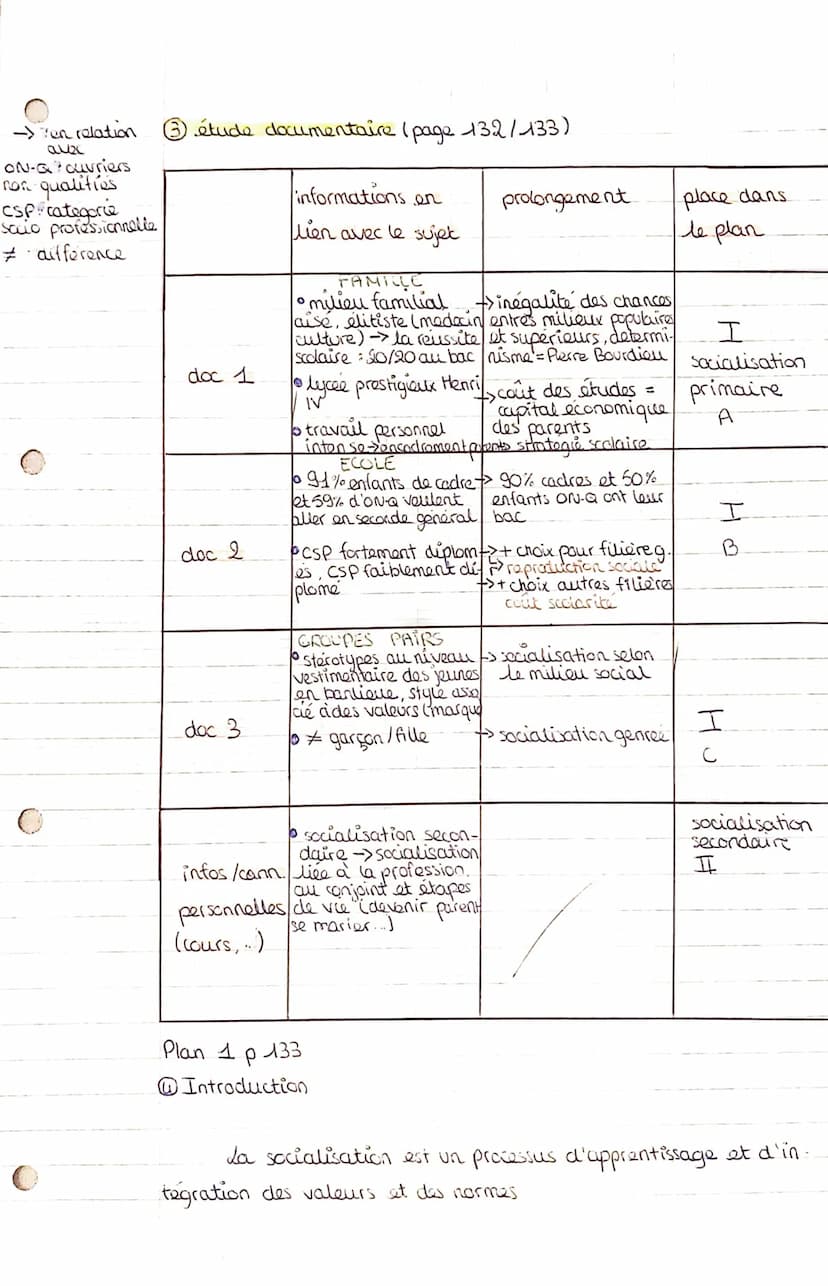 → : en relation
aux
ON-Q : ouvriers
non qualifiés
CSP : catégorie
socio professionnelle
≠ : différence
③ étude documentaire (page 132/133)
informations en
lien avec le sujet
prolongement
place dans
le plan
doc 1
FAMILLE
• milieu familial
aisé, élitiste (médecin
culture) → la réussite
scolaire : 20/20 au bac
• lycée prestigieux Henri
IV
• travail personnel
intense → encadrement parents stratégie scolaire
→ inégalité des chances
entres milieux populaires
et supérieurs, détermi-
nisme = Pierre Bourdieu
→ coût des études =
capital économique
des parents
I
socialisation
primaire
A
doc 2
ECOLE
• 91% enfants de cadre
et 59% d'ON-Q veulent
aller en seconde général
• CSP fortement diplom
és, CSP faiblement di-
plomé
→ 90% cadres et 50%
enfants ON-Q ont leur
bac
→ + choix pour filière g.
↳ reproduction sociale
→ + choix autres filières
coût scolarité
I
B
doc 3
GROUPES PAIRS
• stérotypes au niveau
vestimentaire des jeunes
en banlieue, style asso
cié à des valeurs (marque
• ≠ garçon/fille
→ socialisation selon
le milieu social
→ socialisation genrée
I
C
infos/conn.
personnelles
(cours, ..)
• socialisation secon-
daire → socialisation
liée à la profession,
au conjoint et étapes
de vie (devenir parent
se marier...)
socialisation
secondaire
II
Plan 1 p 133
④ Introduction
La socialisation est un processus d'apprentissage et d'in-
tégration des valeurs et des normes